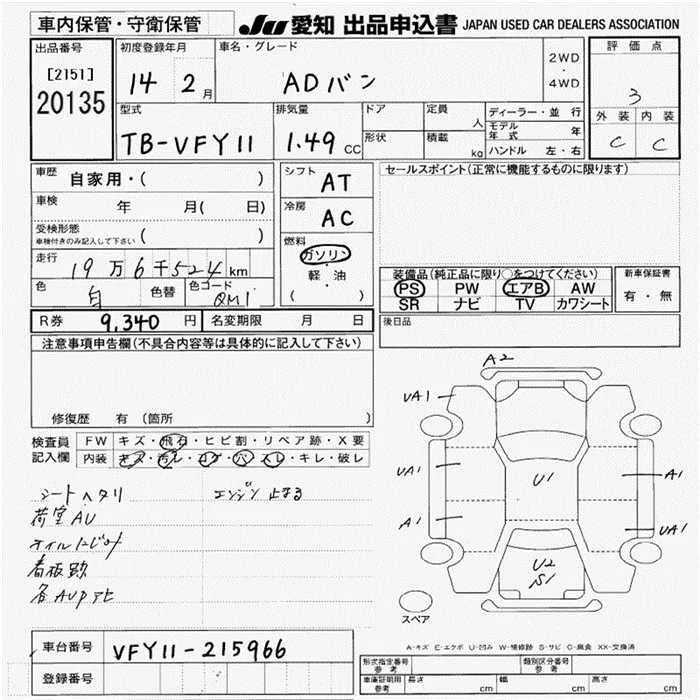 車内保管・守衛保管
JU 愛知 出品申込書 JAPAN USED CAR DEALERS ASSOCIATION
出品番号
[2151]
20135
初度登録年月
14 2月
車名・グレード
ADバン
2WD
・
4WD
評価点
3
外装 内装
C C
型式
TB-VFY11
排気量
1.49 CC
ドア
形状
定員 人
積載 kg
ディーラー・並行
モデル年式 年
ハンドル 左・右
車歴 自家用・( )
車検 年 月( 日)
受検形態 ( )
車検付きのみ記入して下さい
走行 19万6千524km
色 白 色替 色コード QM1
シフト AT
冷房 AC
燃料
ガソリン
軽・油
( )
セールスポイント(正常に機能するものに限ります)
装備品(純正品に限り○をつけてください)
PS PW エアB AW
SR ナビ TV カワシート
新車保証書
有・無
R券 9,340 円 名変期限 月 日
後日品
注意事項申告欄(不具合内容等は具体的に記入して下さい)
修復歴 有 (箇所 )
検査員
記入欄
FW キズ・飛石・ヒビ割・リペア跡・X要
内装 キズ・汚レ・コゲ・穴・スレ・キレ・破レ
シートヘタリ エンジン止まる
荷室AU
オイルにじみ
看板跡
各AUPアヒ
A2
UA1
UA1
A1
U1
A1
UA1
U2
S1
スペア
A-キズ E-エクボ U-凹み W-補修跡 S-サビ C-腐食 XX-交換済
車台番号 VFY11-215966
登録番号
形式指定番号
参考
類別区分番号
参考
車庫証明用
参考
長さ cm 幅 cm 高さ cm